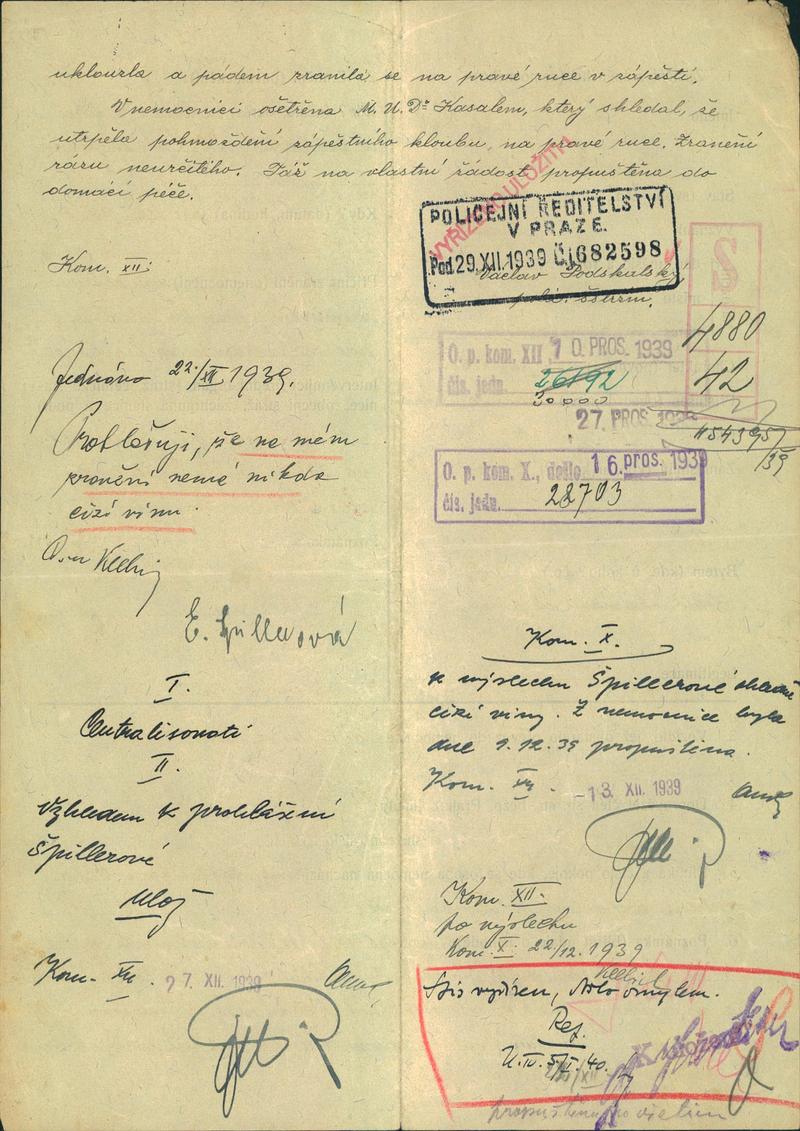 uklouzla a pádem zranila se na pravé ruce v zápěstí.
V nemocnici ošetřena M. U. Dr Kasalem, který shledal, že
utrpěla pohmoždění zápěstního kloubu, na pravé ruce. Zranění
rázu neurčitého. Táž na vlastní žádost propuštěna do
domácí péče.
VYŘÍZENO ULOŽITI
POLICEJNÍ ŘEDITELSTVÍ
V PRAZE.
Pod. 29.XII.1939 Čj 682598
Václav Podskalský
Kom. XII:
S
4880
42
O. p. kom. XII 10. PROS. 1939
čís. jedn. 26192
30000
27. PROS. 1939
1154395
/39
O. p. kom. X., došlo 16. pros. 1939
čís. jedn. 28703
Jednáno 22./XII 1939.
Prohlašuji, že na mém
zranění nemá nikdo
cizí vinu.
E. Spillerová
I.
Centralisovati
II.
Vzhledem k prohlášení
Špillerové
ulož
Kom. XII. 27. XII. 1939
Kom. X.
k výslechu Špillerové ohledně
cizí viny. Z nemocnice byla
dne 9.12.39 propuštěna.
Kom. XII. -13. XII. 1939
Kom. XII.
po výslechu
Kom. X: 22/12. 1939
Spis vyřízen, omylem.